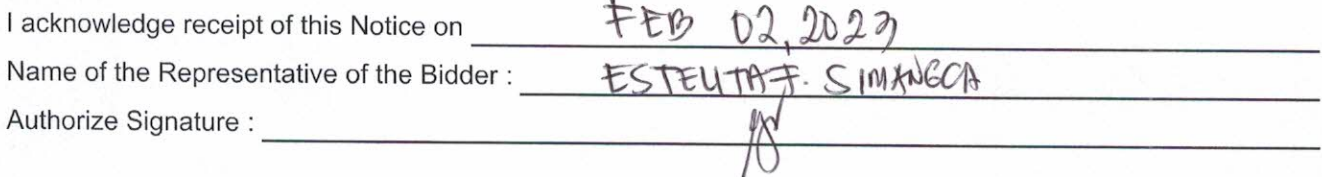 I acknowledge receipt of this Notice on FEB 02, 2023
Name of the Representative of the Bidder : ESTELITA F. SIMANGCA
Authorize Signature :